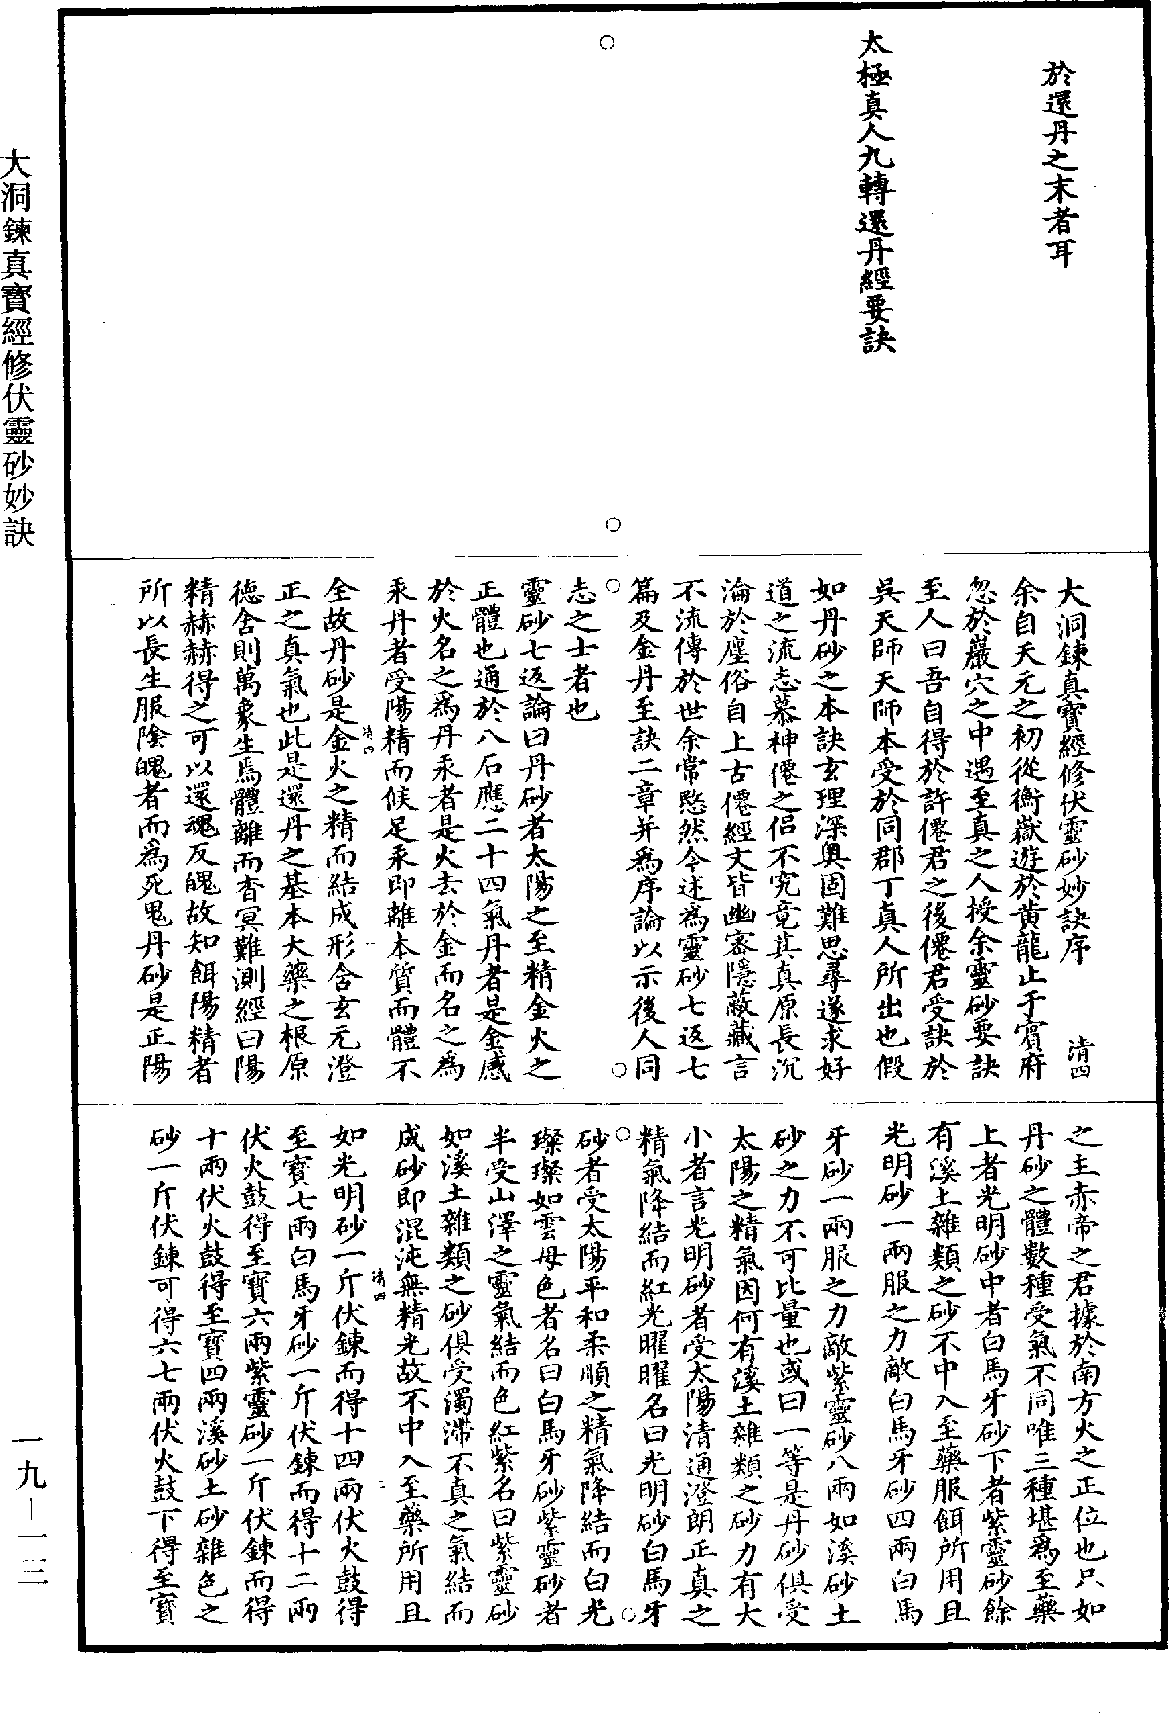 於還丹之末者耳
太極真人九轉還丹經要訣
大洞鍊真寶經修伏靈砂妙訣序 清四
余自天元之初從衡嶽遊於黄龍止于賓府
忽於巖穴之中遇至真之人授余靈砂要訣
至人曰吾自得於許僊君之後僊君受訣於
吳天師天師本受於同郡丁真人所出也假
如丹砂之本訣玄理深奥固難思尋遂求好
道之流志慕神僊之侶不究竟其真原長沉
淪於塵俗自上古僊經文皆幽宻隱蔽藏言
不流傳於世余常愍然今述爲靈砂七返七
篇及金丹至訣二章并爲序論以示後人同
志之士者也
靈砂七返論曰丹砂者太陽之至精金火之
正體也通於八石應二十四氣丹者是金感
於火名之爲丹汞者是火去於金而名之爲
汞丹者受陽精而候足汞即離本質而體不
全故丹砂是金火之精而結成形含玄元澄
正之真氣也此是還丹之基本大藥之根原
德含則萬象生焉體離而杳冥難測經曰陽
精赫赫得之可以還魂反魄故知餌陽精者
所以長生服陰魄者而爲死鬼丹砂是正陽
清四
之主赤帝之君據於南方火之正位也只如
丹砂之體數種受氣不同唯三種堪爲至藥
上者光明砂中者白馬牙砂下者紫靈砂餘
有溪土雜類之砂不中入至藥服餌所用且
光明砂一兩服之力敵白馬牙砂四兩白馬
牙砂一兩服之力敵紫靈砂八兩如溪砂土
砂之力不可比量也或曰一等是丹砂俱受
太陽之精氣因何有溪土雜類之砂力有大
小者言光明砂者受太陽清通澄朗正真之
精氣降結而紅光曜曜名曰光明砂白馬牙
砂者受太陽平和柔順之精氣降結而白光
璨璨如雲母色者名曰白馬牙砂紫靈砂者
半受山澤之靈氣結而色紅紫名曰紫靈砂
如溪土雜類之砂俱受濁滯不真之氣結而
成砂即混沌無精光故不中入至藥所用且
如光明砂一斤伏鍊而得十四兩伏火鼓得
至寶七兩白馬牙砂一斤伏鍊而得十二兩
伏火鼓得至寶六兩紫靈砂一斤伏鍊而得
十兩伏火鼓得至寶四兩溪砂土砂雜色之
砂一斤伏鍊可得六七兩伏火鼓下得至寶
清四
大洞鍊真寶經修伏靈砂妙訣
一九—一三